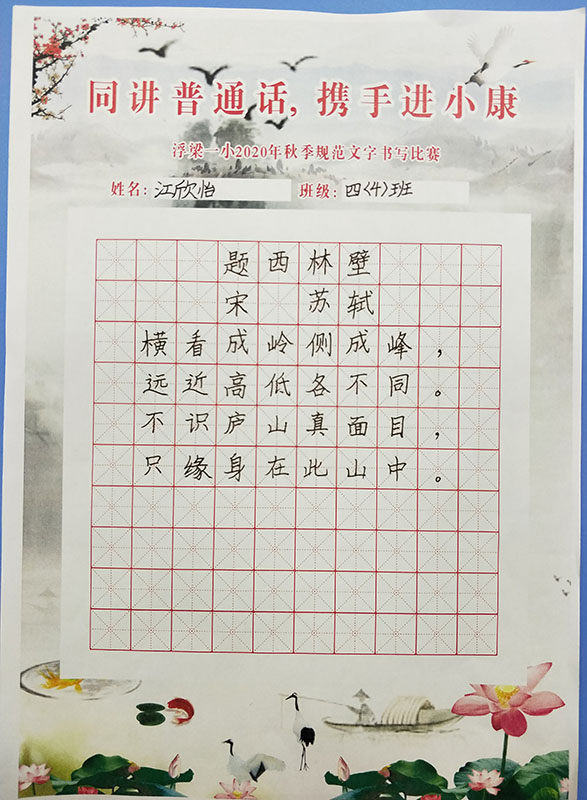 同讲普通话,携手进小康
浮梁一小2020年秋季规范文字书写比赛
姓名:江欣怡 班级:四(4)班
题西林壁
宋 苏轼
横看成岭侧成峰,
远近高低各不同。
不识庐山真面目,
只缘身在此山中。